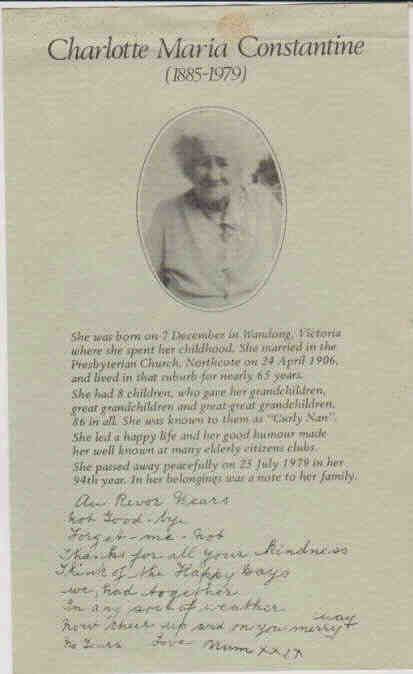 Charlotte Maria Constantine
(1885-1979)
She was born on 7 December in Wandong, Victoria
where she spent her childhood. She married in the
Presbyterian Church, Northcote on 24 April 1906,
and lived in that suburb for nearly 65 years.
She had 8 children, who gave her grandchildren,
great grandchildren and great-great grandchildren,
86 in all. She was known to them as "Curly Nan".
She led a happy life and her good humour made
her well known at many elderly citizens clubs.
She passed away peacefully on 23 July 1979 in her
94th year. In her belongings was a note to her family.
Au Revor
Not Good-bye
Forget-me-not
Thanks for all your Kindness
Think of the Happy Days
we had together
In any sort of weather
Now cheer up and on you merry way
No Tears Love Mum xxxx